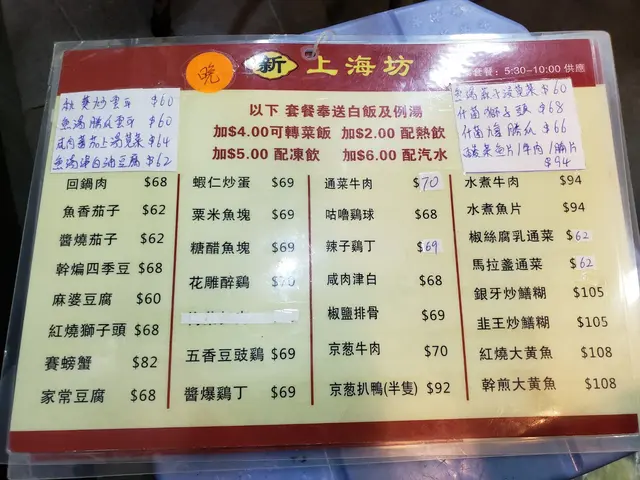 晚
新 上海坊
套餐：5:30-10:00 供應
以下 套餐奉送白飯及例湯
加$4.00可轉菜飯 加$2.00 配熱飲
加$5.00 配凍飲 加$6.00 配汽水
炒雲耳 $60
魚湯勝瓜雲耳 $60
咸肉番茄上湯莧菜 $64
魚湯津白油豆腐 $62
$60
什菌獅子頭 $68
什菌 勝瓜 $66
魚片/牛肉/腩片
$94
回鍋肉 $68
魚香茄子 $62
醬燒茄子 $62
幹煸四季豆 $68
麻婆豆腐 $60
紅燒獅子頭 $68
賽螃蟹 $82
家常豆腐 $68
蝦仁炒蛋 $69
粟米魚塊 $69
糖醋魚塊 $69
花雕醉鷄 $70
五香豆豉鷄 $69
醬爆鷄丁 $69
通菜牛肉 $70
咕嚕鷄球 $68
辣子鷄丁 $69
咸肉津白 $68
椒鹽排骨 $69
京葱牛肉 $70
京葱扒鴨(半隻) $92
水煮牛肉 $94
水煮魚片 $94
椒絲腐乳通菜 $62
馬拉盞通菜 $62
銀牙炒鱔糊 $105
韭王炒鱔糊 $105
紅燒大黄魚 $108
幹煎大黄魚 $108